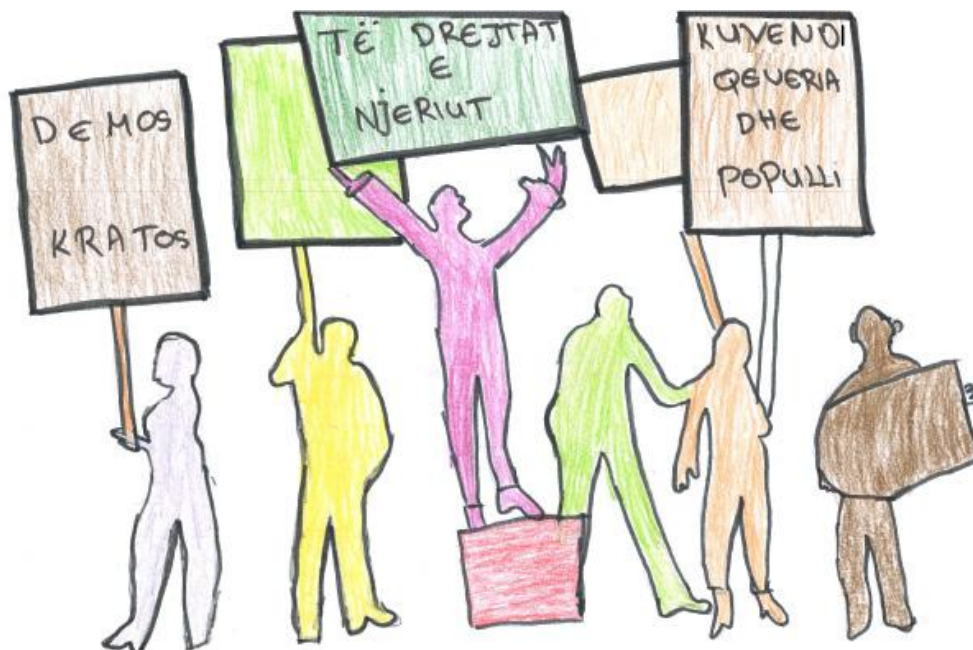 DEMOS
KRATOS
TË DREJTAT
E
NJERIUT
KUVENDI
QEVERIA
DHE
POPULLI